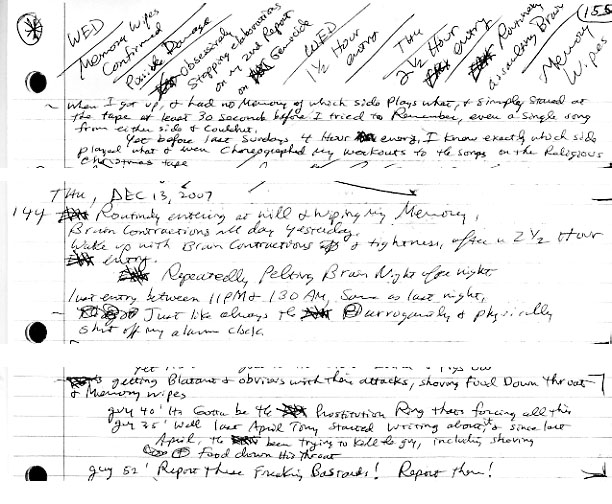 155
WED
Memory Wipes
Confirmed
Possible Damage
Obsessively
Stopping elaborations
on my 2nd Report
on Genocide
WED
1½ Hour
entry
THU
2½ Hour
entry
Routinely
assaulting Brain
Memory
Wipes
~ when I got up, & had no Memory of which side plays what, & simply stared at
the tape at least 30 seconds before I tried to Remember, even a single song
from either side & Couldn't.
Yet before last Sundays 4 Hour entry, I know exactly which side
played what & even Choreographed my workouts to the songs on the Religious
Christmas tape
THU, DEC 13, 2007
144 Routinely entering at will & wiping my Memory,
Brain Contractions All day yesterday.
Wake up with Brain Contractions & tightness, after a 2½ Hour
entry.
Repeatedly Pelting Brain Night after night
last entry between 11PM & 130 AM, Same as last night,
~ Just like always the arrogantly & physically
shut off my alarm clock.
getting Blatant & obvious with their attacks, shoving Food Down throat
& Memory wipes
guy 40' Its Gotta be the Prostitution Ring thats forcing all this
guy 35' Well last April Tony started writing about it & since last
April, the been trying to kill the guy, including shoving
Food down His throat
guy 52' Report These Freaking Bastards! Report them!